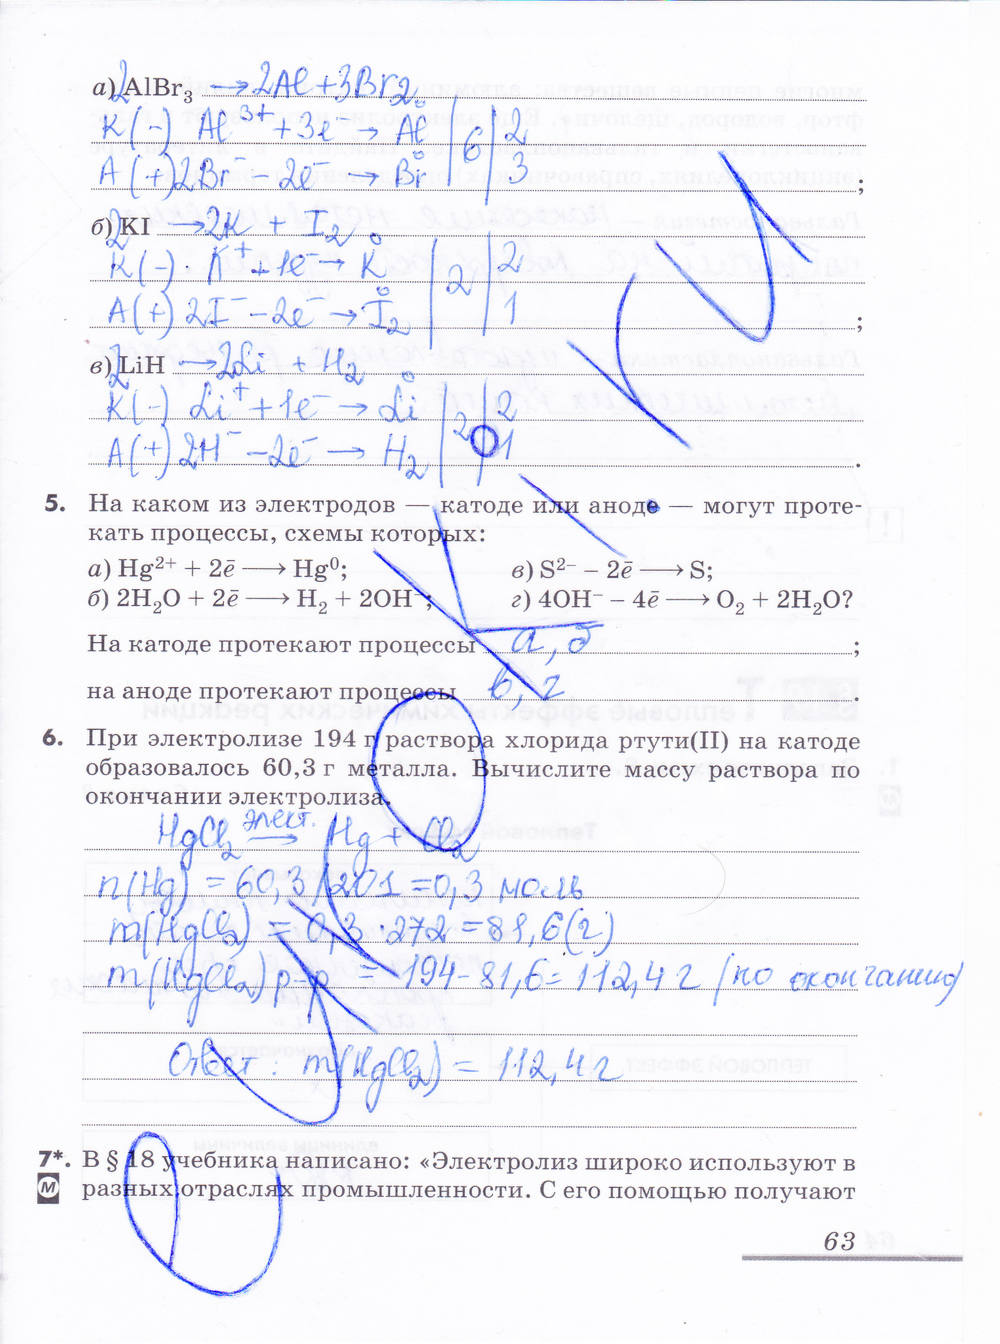 а) 2AlBr₃ → 2Al + 3Br₂
K(-) Al³⁺ + 3e⁻ → Al⁰ | 6 | 2
A(+) 2Br⁻ - 2e⁻ → Br⁰ | | 3 ;
б) 2KI → 2K + I₂
K(-) K⁺ + 1e⁻ → K⁰ | 2 | 2
A(+) 2I⁻ - 2e⁻ → I₂⁰ | | 1 ;
в) 2LiH → 2Li + H₂
K(-) Li⁺ + 1e⁻ → Li⁰ | 2 | 2
A(+) 2H⁻ - 2e⁻ → H₂ | | 1 .
5. На каком из электродов — катоде или аноде — могут проте-
кать процессы, схемы которых:
а) Hg²⁺ + 2ē → Hg⁰; в) S²⁻ – 2ē → S;
б) 2H₂O + 2ē → H₂ + 2OH⁻; г) 4OH⁻ – 4ē → O₂ + 2H₂O?
На катоде протекают процессы а, б ;
на аноде протекают процессы в, г
6. При электролизе 194 г раствора хлорида ртути(II) на катоде
образовалось 60,3 г металла. Вычислите массу раствора по
окончании электролиза.
HgCl₂ элект. → Hg + Cl₂
n(Hg) = 60,3/201 = 0,3 моль
m(HgCl₂) = 0,3 · 272 = 81,6(г)
m(HgCl₂) р-р = 194 - 81,6 = 112,4 г (по окончанию)
Ответ: m(HgCl₂) = 112,4 г
7*. В § 18 учебника написано: «Электролиз широко используют в
М разных отраслях промышленности. С его помощью получают
63